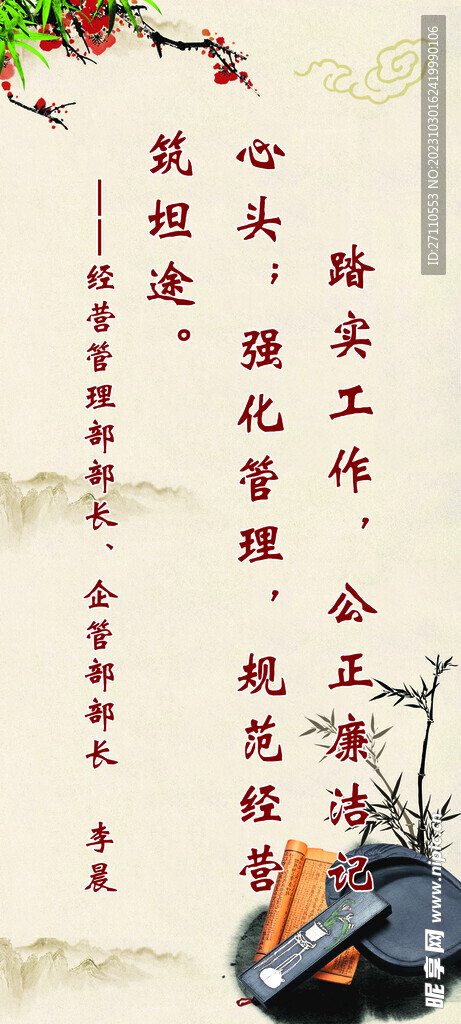 踏实工作，公正廉洁记
心头；强化管理，规范经营
筑坦途。
——经营管理部部长、企管部部长 李晨
ID:27110553 NO:20231030162419990106
昵享网 www.nipic.cn